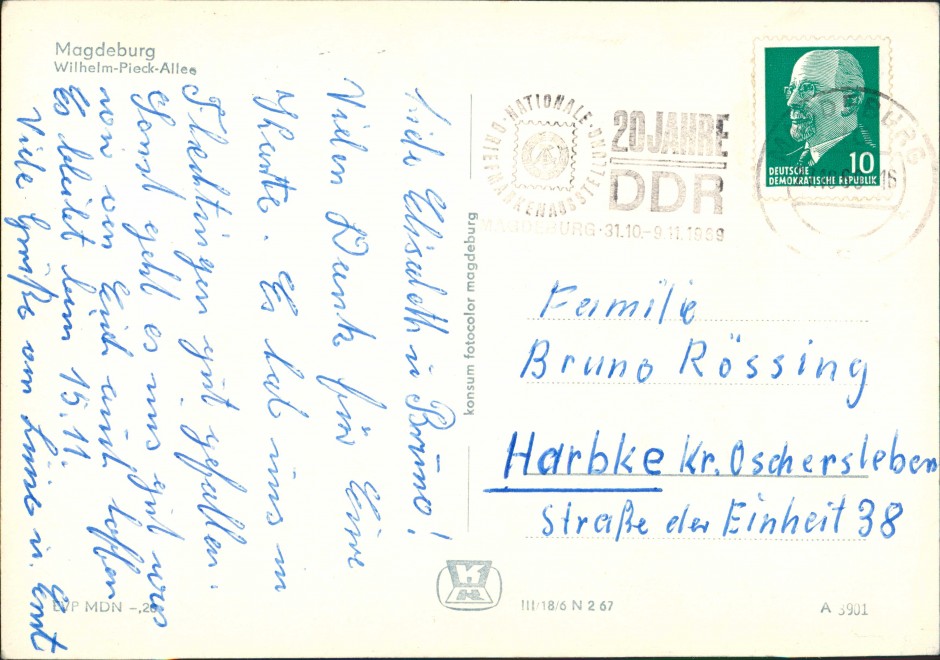 Magdeburg
Wilhelm-Pieck-Allee
Liebe Elisabeth u Bruno!
Vielen Dank für Eure
Karte. Es hat uns in
Flechtingen gut gefallen.
Sonst geht es uns gut was
wir von Euch auch hoffen
Es bleibt beim 15.11.
Viele Grüße von u. Ernst
konsum fotocolor magdeburg
BRIEFMARKENAUSSTELLUNG · NATIONALE
20 JAHRE
DDR
MAGDEBURG · 31.10.-9.11.1969
MAGDEBURG
10
DEUTSCHE
DEMOKRATISCHE REPUBLIK
Familie
Bruno Rössing
Harbke Kr. Oschersleben
Straße der Einheit 38
EVP MDN -,20
K
H
III/18/6 N 2 67
A 3901